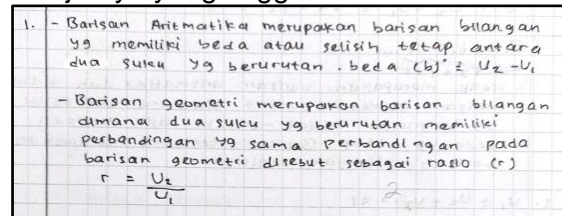 1. - Barisan Aritmatika merupakan barisan bilangan
yg memiliki beda atau selisih tetap antara
dua suku yg berurutan. beda (b) = U₂ - U₁
- Barisan geometri merupakan barisan bilangan
dimana dua suku yg berurutan memiliki
perbandingan yg sama perbandingan pada
barisan geometri disebut sebagai rasio (r)
r = U₂
U₁